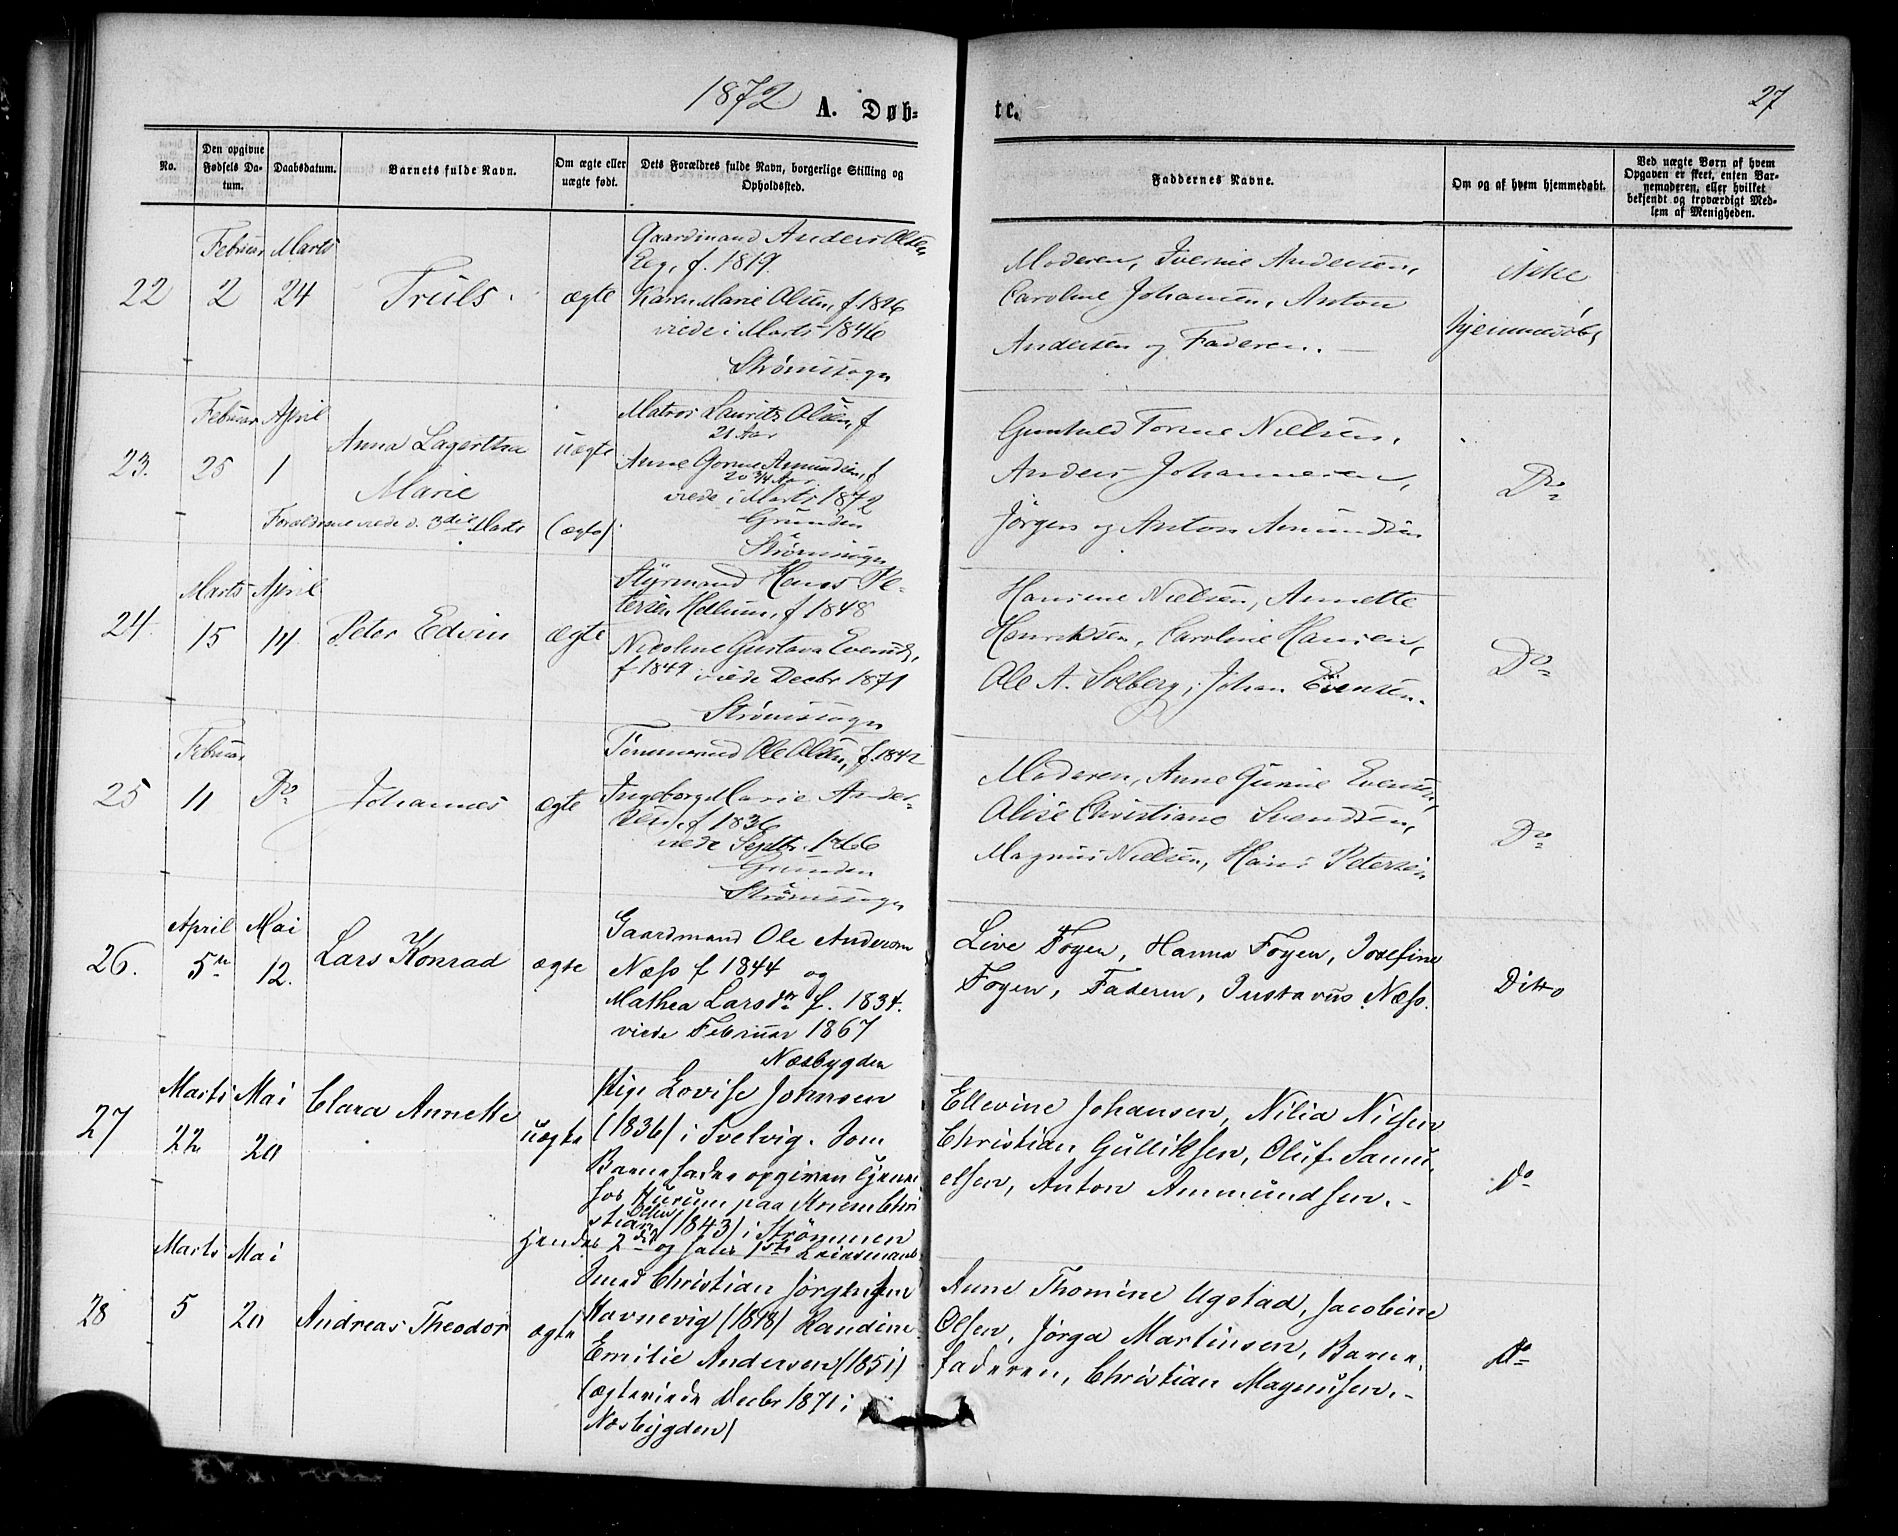 1872 A. Døb-
te.
27
No.
Den opgivne Fødsels Da-
tum.
Daabsdatum.
Barnets fulde Navn.
Om ægte eller
uægte født.
Dets Forældres fulde Navn, borgerlige Stilling og
Opholdssted.
Faddernes Navne.
Om og af hvem hjemmedøbt.
Ved uægte Børn af hvem
Opgaven er skeet, ensen Bar-
nemoderen, eller hvilket
bekjendt og troværdigt Med-
lem af Menigheden.
22
Februar
2
Marts
24
Truls
ægte
Gaardmand Anders Olsen
Eeg, f. 1819
Karen Marie Olsen, f. 1826
viede i Marts 1846
Strømssogn
Moderen, Andersen,
Caroline Johansen, Anton
Andersen og Faderen.
ikke
hjemmedøbt
23.
Februar
25
April
1
Anna Lagertha
Marie
Forældrene viede d. 3die Marts
uægte
(ægte)
Matros Laurits Olsen, f
21 Aar
Anne Gorine Amundsen, f
20 3/4 Aar
viede i Marts 1872
Grunden
Strømssogn
Gunhild Torine Nielsen,
Anders Johannesen,
Jørgen og Anton Amundsen
Do
24.
Marts
15
April
14
Peter Edvin
ægte
Styrmand Hans Pe-
tersen Hellum, f 1848
Nicoline Gustava Evensd,
f 1849 viede Decbr 1871
Strømssogn
Hansine Nielsen, Annette
Henriksen, Caroline Hansen,
Ole A. Solberg, Johan Evensen.
Do
25
Februar
11
Do
Johannes
ægte
Tømmermd Ole Olsen, f. 1842
Ingeborg Marie Ander-
sen, f 1836
viede Septbr. 1866
Grunden
Strømssogn
Moderen, Anne Gurine Evensen,
Alise Christiane Svendsen,
Magnus Nielsen, Hans Petersen
Do
26.
April
5te
Mai
12.
Lars Konrad
ægte
Gaardmand Ole Andersen
Næss f 1844 og
Mathea Larsdr f. 1834.
viede Februar 1867
Næsbygden
Live Føyen, Hanna Foyen, Josefine
Foyen, Faderen, Gustavus Næss.
Ditto
27
Marts
22
Mai
20
Clara Annette
uægte
Pige Lovise Johnsen
(1836) i Svelvig. Som
Barnefader opgiven tjener
hos Hurum paa Mriem Chri
stian Olsen (1843) i Strømmen
hendes 2det og hans 1ste Leiermaal
Ellevine Johansen, Nilia Nilsen
Christian Gulliksen, Oluf Samu
elsen, Anton Ammundsen.
Do
28
Marts
5
Mai
20
Andreas Theodor
ægte
Smed Christian Jørgensen
Havnevig (1848) Randine
Emilie Andersen (1851)
(ægteviede Decbr 1871 i
Næsbygden)
Anne Thomine Ugstad, Jacobine
Olsen, Jørga Martinsen, Barne
faderen, Christian Magnusen.
Do